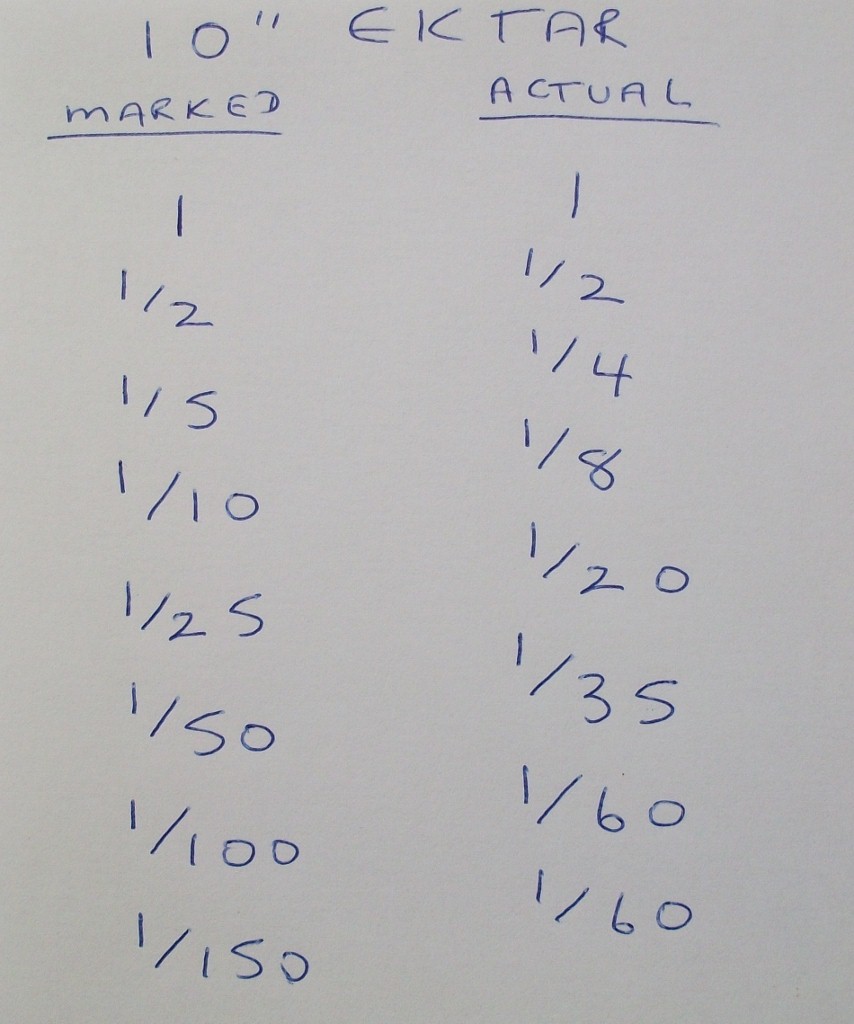 10" EKTAR
MARKED ACTUAL
1 1
1/2 1/2
1/5 1/4
1/10 1/8
1/25 1/20
1/50 1/35
1/100 1/60
1/150 1/60